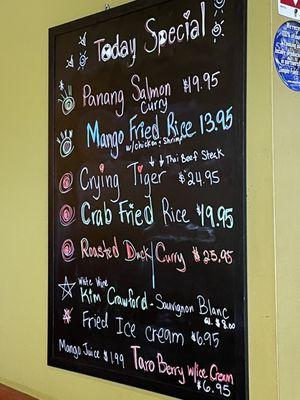 Today Special
Panang Salmon $19.95
Curry
Mango Fried Rice 13.95
w/chicken + Shrimp
Thai Beef Steak
Crying Tiger $24.95
Crab Fried Rice $19.95
Roasted Duck Curry $25.95
White Wine
Kim Crawford - Sauvignon Blanc
Fried Ice cream $6.95
Mango Juice $1.99
Taro Berry w/Ice Cream
$6.95